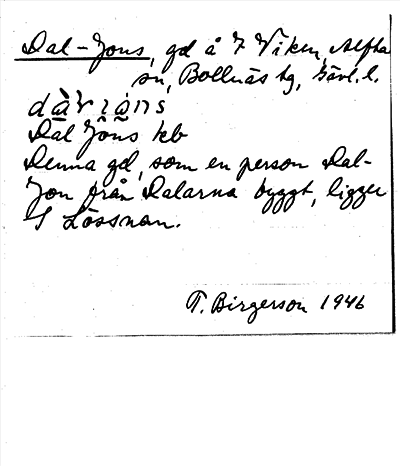 Dal-Jons, gd å 7 Viken, Alfta
sn, Bollnäs tg, Gävl. l.
Dal Jons kb
Denna gd, som en person Dal-
Jon från Dalarna byggt, ligger
S Lössnan.
T. Birgerson 1946